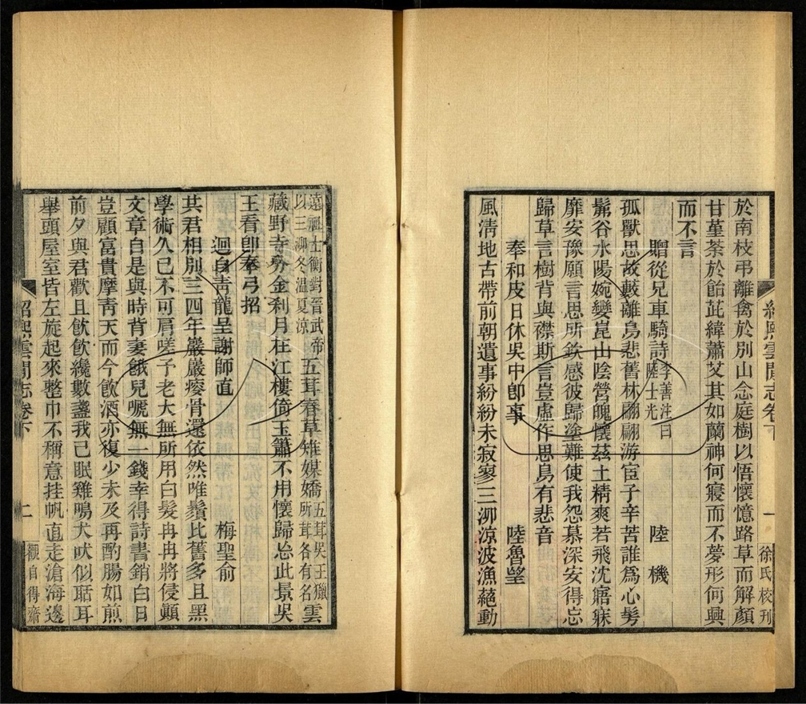 於南枝弔離禽於別山念庭樹以悟懷憶路草而解顏
甘堇荼於飴茈緯蕭艾其如蘭神何寢而不夢形何興
而不言
贈從兄車騎詩 李善注曰 陸士光 陸機
孤獸思故藪離鳥悲舊林翩翩游宦子辛苦誰為心髣
髴谷水陽婉孌崑山陰營魄懷茲土精爽若飛沈寤寐
靡安豫願言思所欽感彼歸塗難使我怨慕深安得忘
歸草言樹背與襟斯言豈虛作思鳥有悲音
奉和皮日休吳中卽事 陸魯望
風清地古帶前朝遺事紛紛未寂寥三泖涼波漁蕝動
遠祖士衡對晉武帝以三泖冬溫夏涼 五茸春草雉媒嬌 五茸吳王獵所茸各有名 雲
藏野寺分金刹月在江樓倚玉簫不用懷歸忘此景吳
王看卽奉弓招
迴自青龍呈謝師直 梅聖俞
共君相別三四年巖巖瘦骨還依然唯鬚比舊多且黑
學術久已不可肩嗟子老大無所用白髮冉冉將侵顛
文章自是與時背妻餓兒啼無一錢幸得詩書銷白日
豈顧富貴摩青天而今飲酒亦復少未及再酌腸如煎
前夕與君歡且飲飲纔數盞我已眠雞鳴犬吠似聒耳
舉頭屋室皆左旋起來整巾不稱意挂帆直走滄海邊
紹熙雲間志卷下
一
徐氏校刊
紹熙雲間志卷下
二
觀自得齋